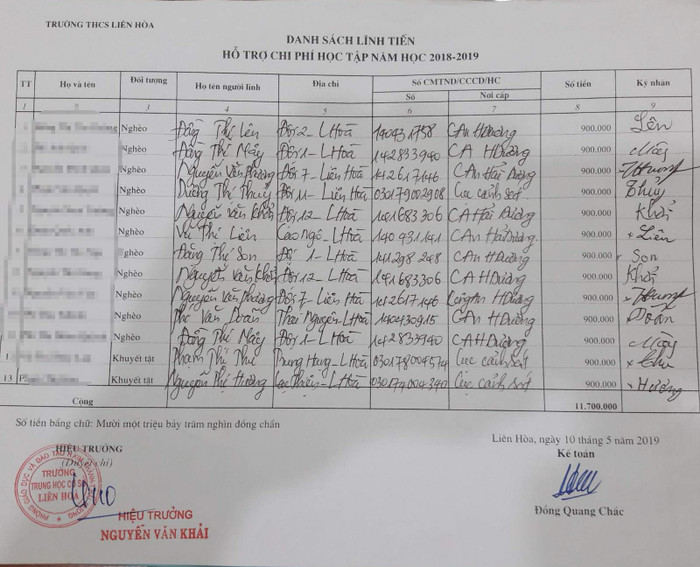 TRƯỜNG THCS LIÊN HÒA
DANH SÁCH LĨNH TIỀN
HỖ TRỢ CHI PHÍ HỌC TẬP NĂM HỌC 2018-2019
TT Họ và tên Đối tượng Họ tên người lĩnh Địa chỉ Số CMTND/CCCD/HC Số tiền Ký nhân
Số Nơi cấp
3 4 5 6 7 8 9
Nghèo Đồng Thị Lên Đội 2 - L Hoà CAn HDương 900.000 Lên
Nghèo Đồng Thị Mây Đội 1 - L Hoà 142833940 CA HDương 900.000 Mây
Nghèo Nguyễn Văn Phương Đội 7 - Liên Hoà 142617146 CAn Hải Dương 900.000
Nghèo Dương Thị Thuỷ Đội 11 - Liên Hoà 030179002908 Cục cảnh sát 900.000 Thủy
Nghèo Nguyễn Văn Khải Đội 12 - L Hoà 141683306 CA Hải Dương 900.000 Khải
Nghèo Vũ Thị Liên Cao Ngô - L Hoà 140931141 CAn Hải Dương 900.000 Liên
Nghèo Đồng Thị Son Đội 1 - L Hoà 141298248 CAn HDương 900.000 Son
Nghèo Nguyễn Văn Khải Đội 12 - L Hoà 141683306 CA HDương 900.000 Khải
Nghèo Nguyễn Văn Phương Đội 7 - Liên Hoà 142617146 HDương 900.000
Nghèo Văn Doan Thái Nguyên - L Hoà 140430915 CAn HDương 900.000
Nghèo Đồng Thị Mây Đội 1 - L Hoà 142833940 CA HDương 900.000 Mây
1 Khuyết tật Phạm Thị Thu Trung Hưng - L Hoà 030178004574 Cục cảnh sát 900.000
13 Khuyết tật Nguyễn Thị Hương - L Hoà Cục cảnh sát 900.000 Hương
Cộng 11.700.000
Số tiền bằng chữ: Mười một triệu bảy trăm nghìn đồng chẵn
Liên Hòa, ngày 10 tháng 5 năm 2019
HIỆU TRƯỞNG Kế toán
(Duyệt chi)
TRƯỜNG
TRUNG HỌC CƠ SỞ
LIÊN HÒA
HIỆU TRƯỞNG
NGUYỄN VĂN KHẢI
Đồng Quang Chác